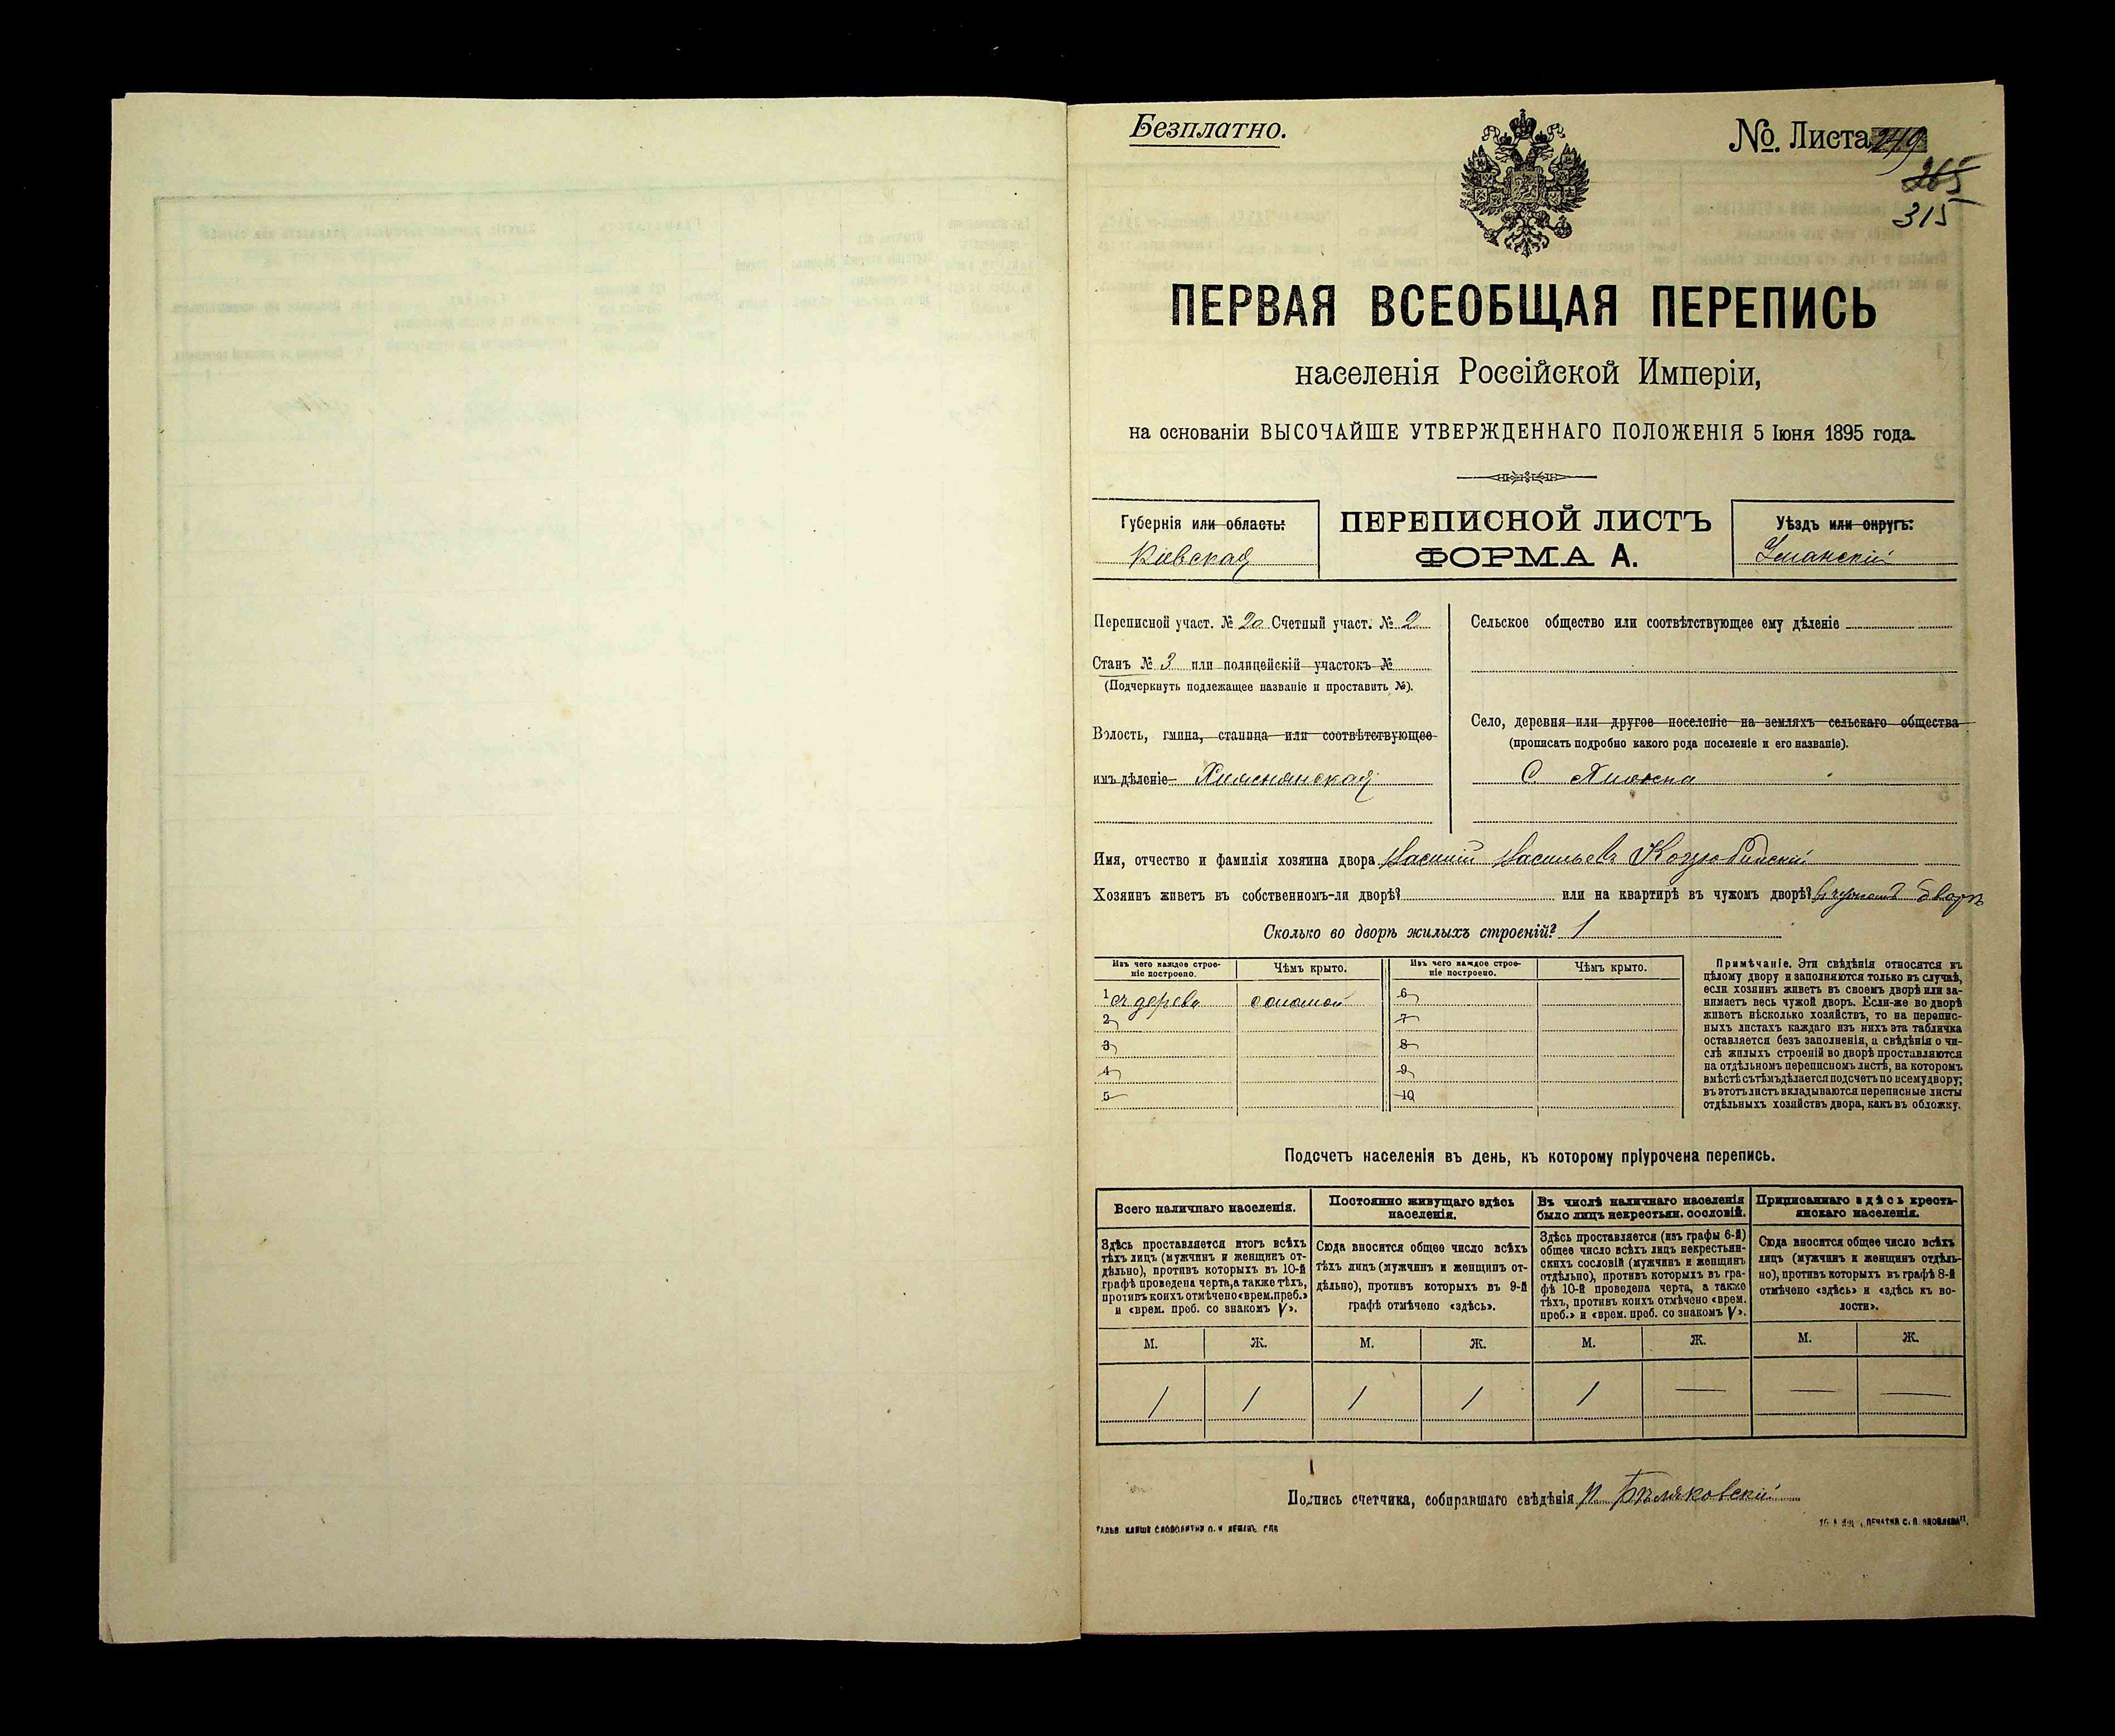 Безплатно.
№. Листа 249
265
315
ПЕРВАЯ ВСЕОБЩАЯ ПЕРЕПИСЬ
населенія Россійской Имперіи,
на основаніи ВЫСОЧАЙШЕ УТВЕРЖДЕННАГО ПОЛОЖЕНІЯ 5 Іюня 1895 года.
Губернія или область:
Кіевская
ПЕРЕПИСНОЙ ЛИСТЪ
ФОРМА А.
Уѣздъ или округъ:
Уманскій
Переписной участ. № 20 Счетный участ. № 2
Станъ № 3 или полицейскій участокъ №
(Подчеркнуть подлежащее названіе и проставить №).
Волость, гмина, станица или соотвѣтствующее
имъ дѣленіе
Сельское общество или соотвѣтствующее ему дѣленіе
Село, деревня или другое поселеніе на земляхъ сельскаго общества
(прописать подробно какого рода поселеніе и его названіе).
С.
Имя, отчество и фамилія хозяина двора Василій Васильевъ Коцюбинскій
Хозяинъ живетъ въ собственномъ-ли дворѣ? или на квартирѣ въ чужомъ дворѣ? в чужомъ дворѣ
Сколько во дворѣ жилыхъ строеній? 1
Изъ чего каждое строе-
ніе построено.
Чѣмъ крыто.
Изъ чего каждое строе-
ніе построено.
Чѣмъ крыто.
1 съ дерева соломой 6
2 7
3 8
4 9
5 10
Примѣчаніе. Эти свѣдѣнія относятся къ
цѣлому двору и заполняются только въ случаѣ,
если хозяинъ живетъ въ своемъ дворѣ или за-
нимаетъ весь чужой дворъ. Если-же во дворѣ
живетъ нѣсколько хозяйствъ, то на перепис-
ныхъ листахъ каждаго изъ нихъ эта табличка
оставляется безъ заполненія, а свѣдѣнія о чи-
слѣ жилыхъ строеній во дворѣ проставляются
на отдѣльномъ переписномъ листѣ, на которомъ
вмѣстѣ съ тѣмъ дѣлается подсчетъ по всему двору;
въ этотъ листъ вкладываются переписные листы
отдѣльныхъ хозяйствъ двора, какъ въ обложку.
Подсчетъ населенія въ день, къ которому пріурочена перепись.
Всего наличнаго населенія.
Здѣсь проставляется итогъ всѣхъ
тѣхъ лицъ (мужчинъ и женщинъ от-
дѣльно), противъ которыхъ въ 10-й
графѣ проведена черта, а также тѣхъ,
противъ коихъ отмѣчено «врем. преб.»
и «врем. преб. со знакомъ V».
Постоянно живущаго здѣсь
населенія.
Сюда вносится общее число всѣхъ
тѣхъ лицъ (мужчинъ и женщинъ от-
дѣльно), противъ которыхъ въ 9-й
графѣ отмѣчено «здѣсь».
Въ числѣ наличнаго населенія
было лицъ некрестьян. сословій.
Здѣсь проставляется (изъ графы 6-й)
общее число всѣхъ лицъ некрестьян-
скихъ сословій (мужчинъ и женщинъ
отдѣльно), противъ которыхъ въ гра-
фѣ 10-й проведена черта, а также
тѣхъ, противъ коихъ отмѣчено «врем.
преб.» и «врем. преб. со знакомъ V».
Приписаннаго здѣсь кресть-
янскаго населенія.
Сюда вносится общее число всѣхъ
лицъ (мужчинъ и женщинъ отдѣль-
но), противъ которыхъ въ графѣ 8-й
отмѣчено «здѣсь» и «здѣсь къ во-
лости».
М. Ж. М. Ж. М. Ж. М. Ж.
1 1 1 1 1 — — —
Подпись счетчика, собиравшаго свѣдѣнія